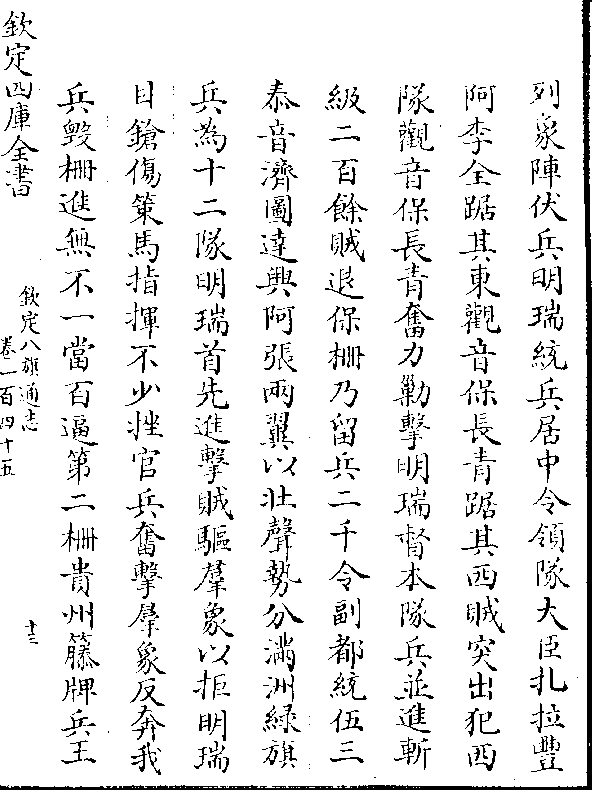 列象陣伏兵明瑞統兵居中令領隊大臣扎拉豐
阿李全踞其東觀音保長青踞其西賊突出犯西
隊觀音保長青奮力勦擊明瑞督本隊兵並進斬
級二百餘賊退保柵乃留兵二千令副都統伍三
泰音濟圖達興阿張兩翼以壯聲勢分滿洲綠旗
兵為十二隊明瑞首先進擊賊驅羣象以拒明瑞
目鎗傷策馬指揮不少挫官兵奮擊羣象反奔我
兵毀柵進無不一當百逼第二柵貴州籐牌兵王
欽定四庫全書
欽定八旗通志
卷一百四十五
十三